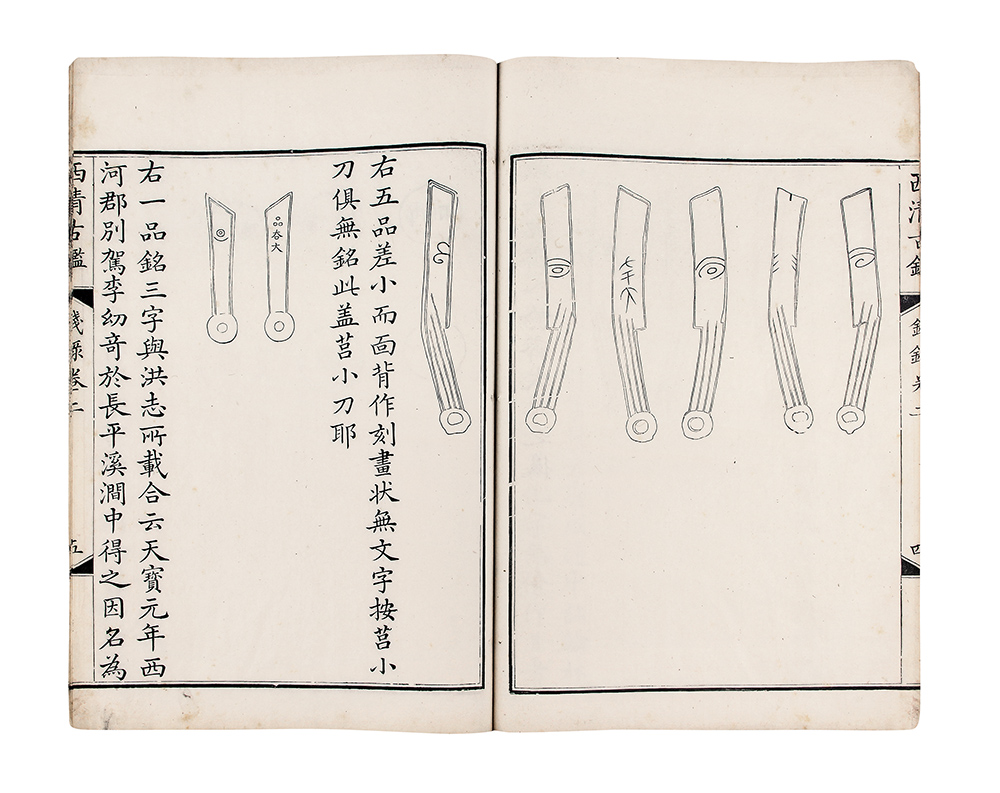 西清古鑑
錢錄卷二
四
右五品差小而靣背作刻畫狀無文字按莒小
刀俱無銘此蓋莒小刀耶
右一品銘三字與洪志所載合云天寶元年西
河郡別駕李幼竒於長平溪澗中得之因名為
西清古鑑
錢錄卷二
五